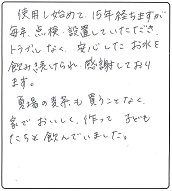 使用し始めて、15年経ちますが
毎年、点検・設置していただき、
トラブルなく、安心したお水を
飲み続けられ、感謝しており
ます。
夏場の麦茶も買うことなく、
家でおいしく作って 子ども
たちと飲んでいました。